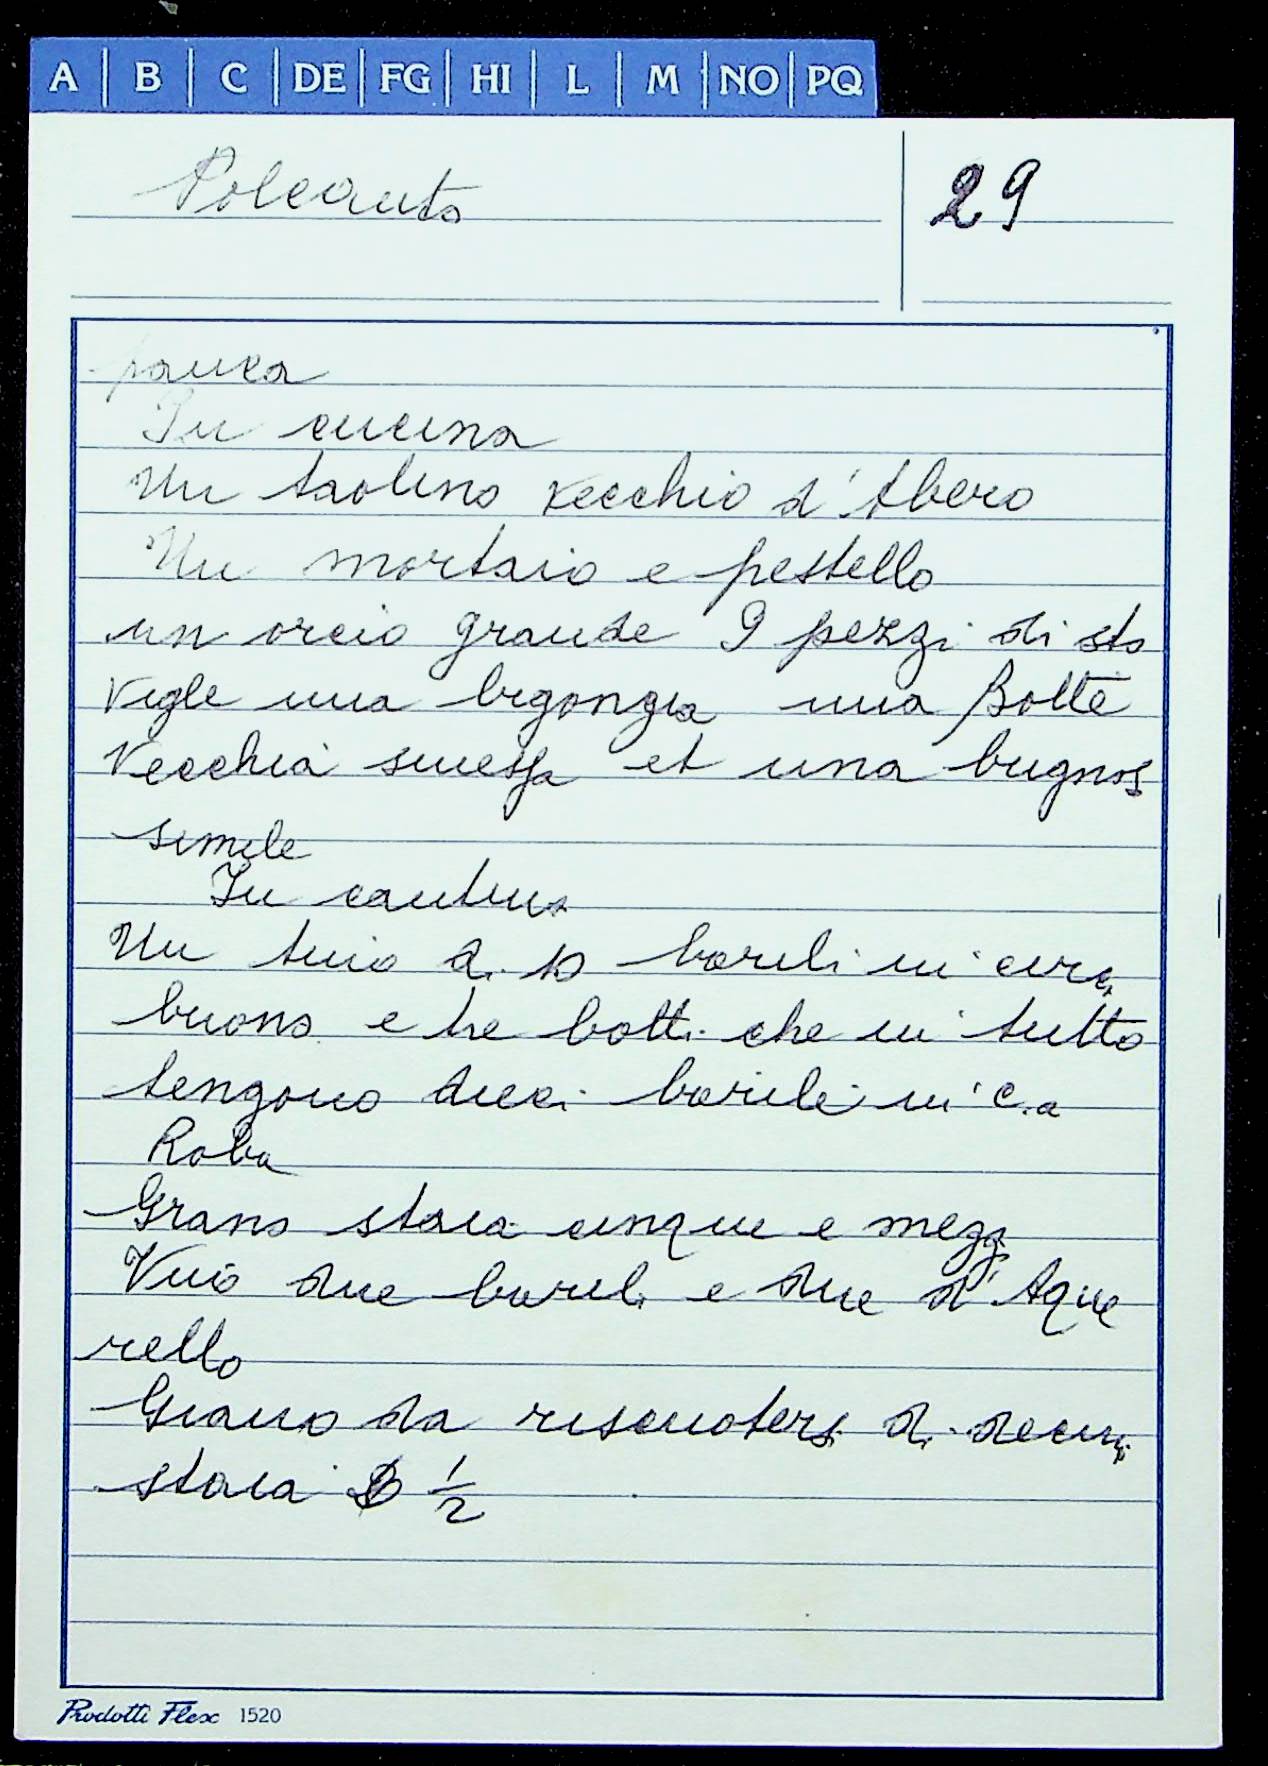 A B C DE FG HI L M NO PQ
Polcanto
29
panca
In cucina
Un taolino vecchio d'Abero
Un mortaio e pestello
un orcio grande 9 pezzi di sto
vigle una bigongia una Botte
Vecchia smessa et una bugnos
simile
In cantina
Un tino di 10 barili in circa
buono e tre botti che in tutto
tengono dieci barili in c.a
Roba
Grano staia cinque e mezz
Vino due barili e due d'Aque
rello
Grano da riscuotersi di
staia ½
Prodotti Flex 1520